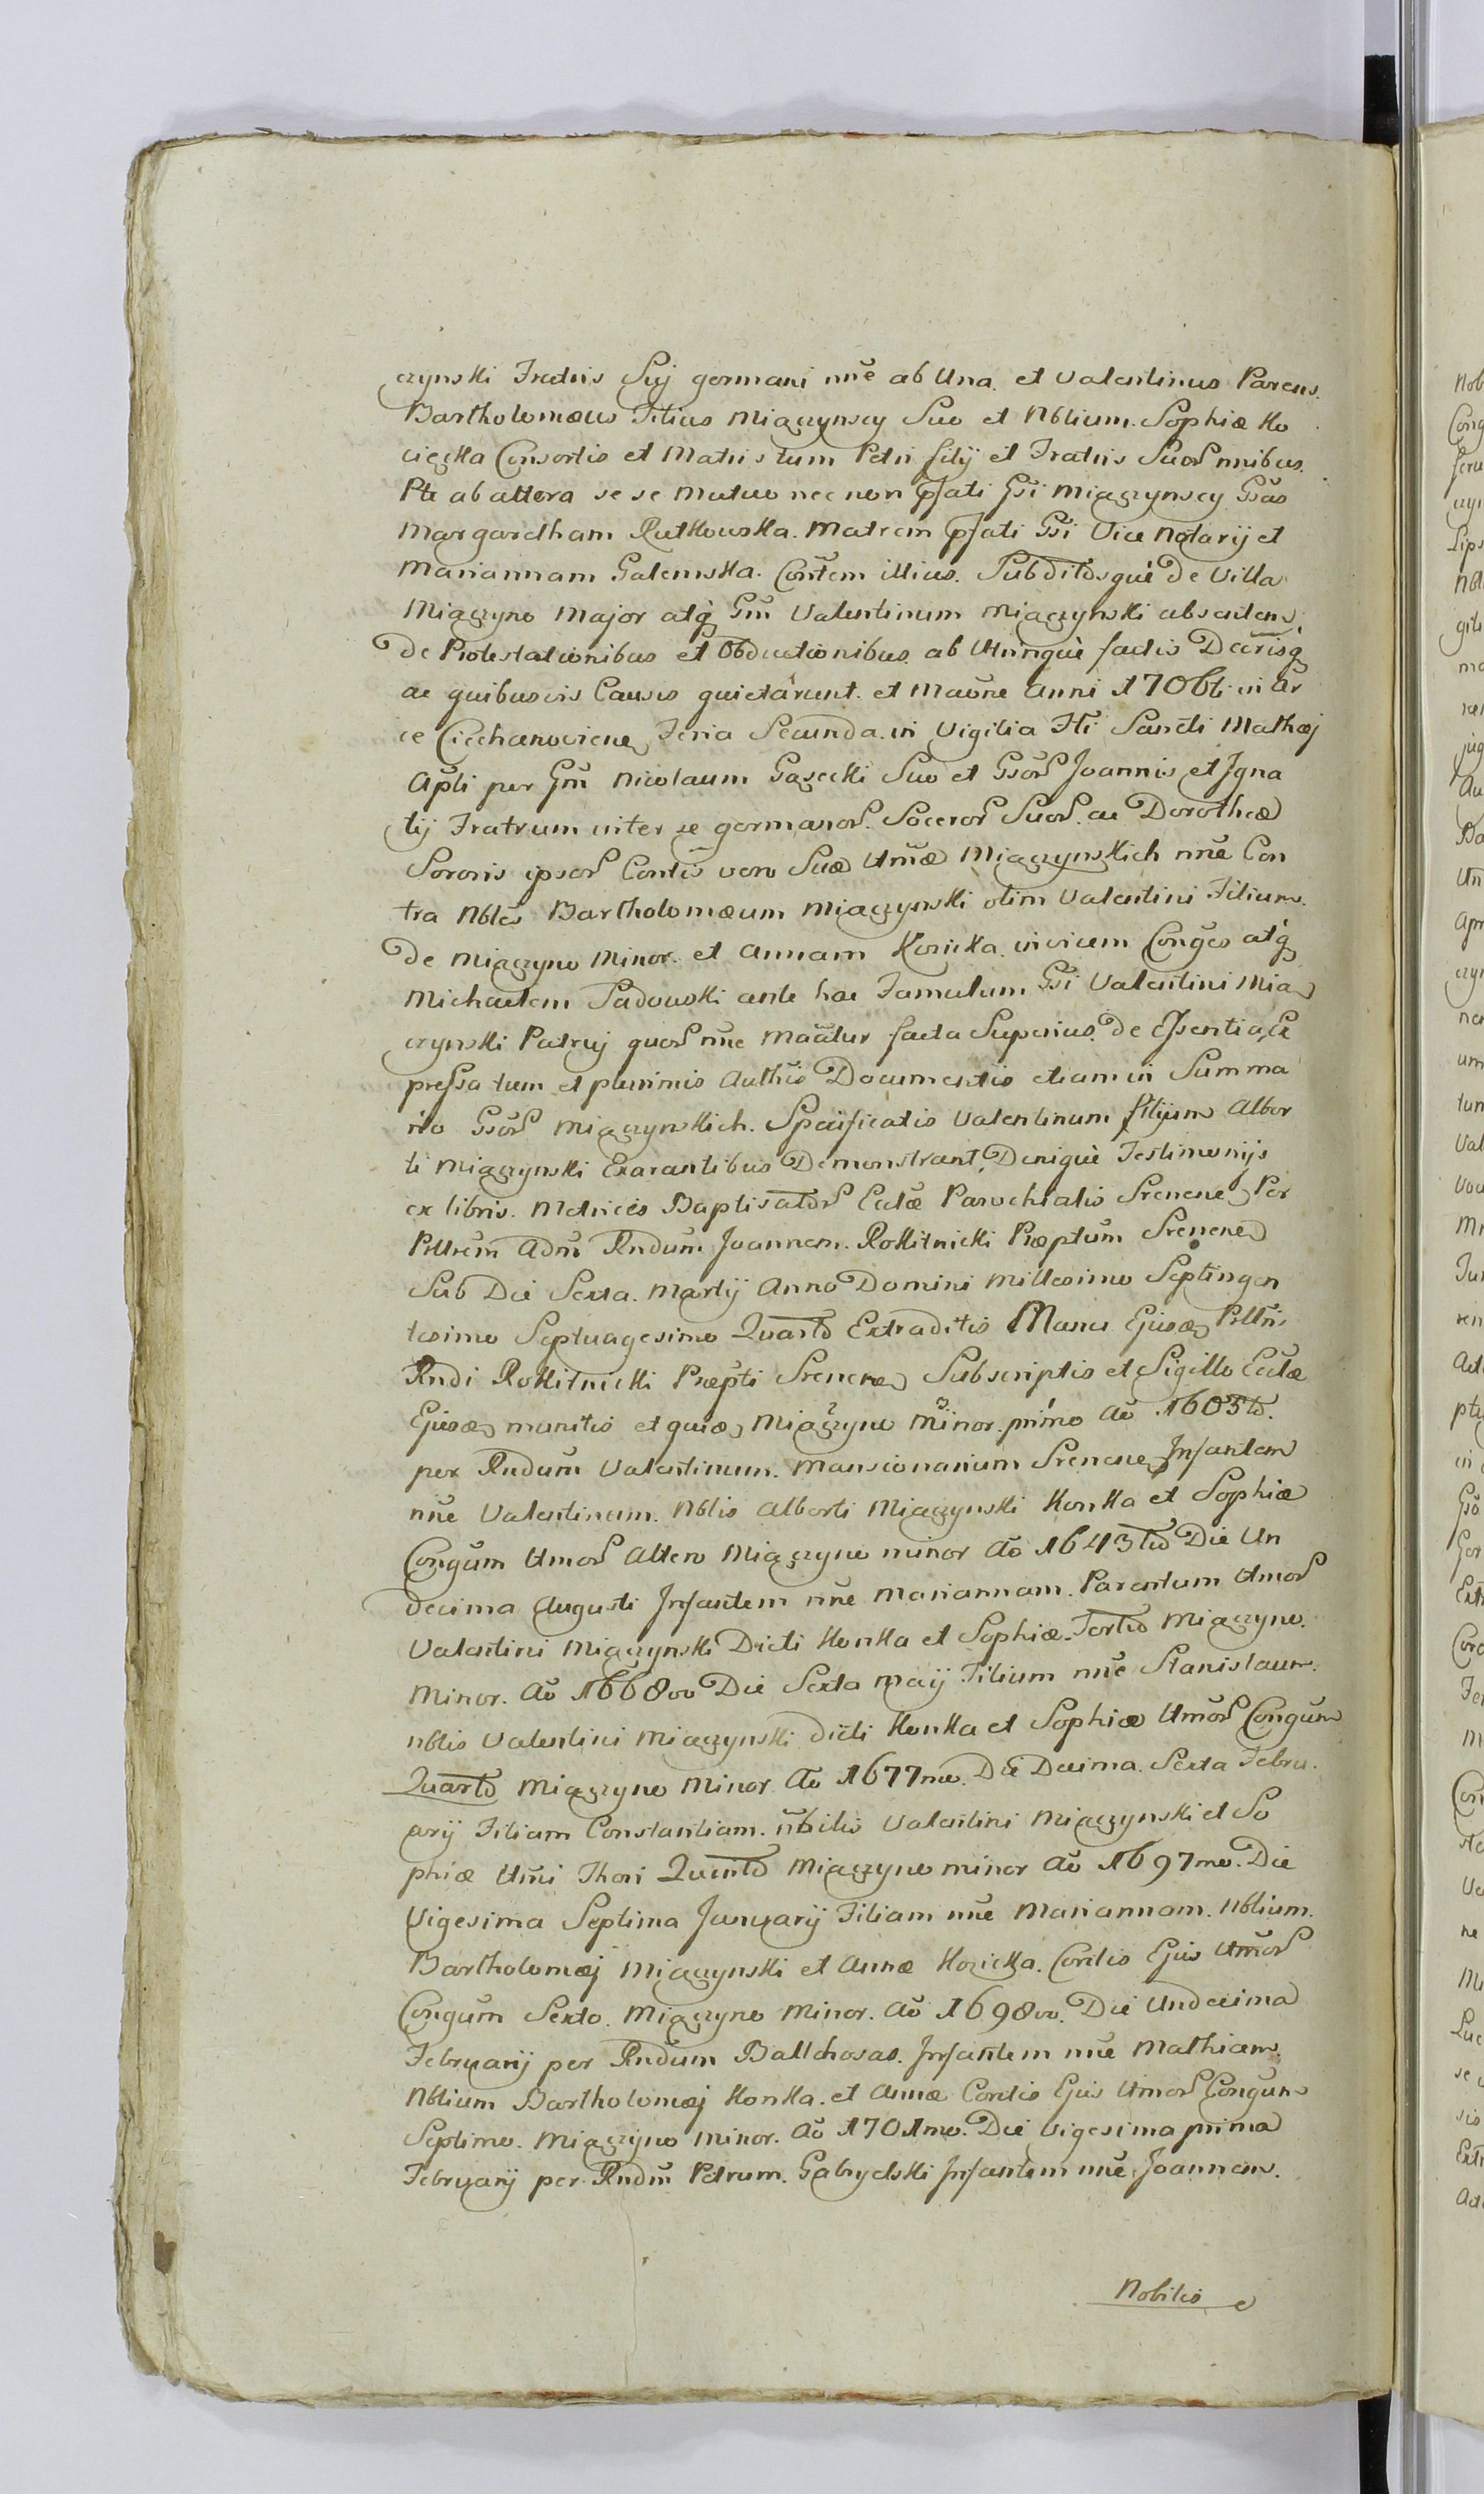 czynski Fratris Suj germani nñe ab Una. et Valentinus Parens.
Bartholomæus Filius Miączynscy Suo et Nblium. Sophiæ Ko
cięcka Consortis et Matris tum Petri filij et Fratris Suor nnibus.
Pte ab altera se se Mutuo nec non Pfati Gsi Miączynscy Gsas
Margaretham Rutkowska. Matrem Pfati Gsi Vice Notarij et
Mariannam Galemska. Contem illius. Subditosquè de Villa
Miączyno Major atq Gm Valentinum Miączynski absentem,
De Protestationibus et Obductionibus ab Utrinquè factis Decrisq
ac quibusvis Causis quietarunt. et Maõne Anni 1706ti in Ar
ce Ciechanoviene Feria Secunda. in Vigilia Fti Sancti Mathæj
Apli per Gm Nicolaum Gasecki Suo et Gsor Joannis et Igna
tij Fratrum inter se germanor. Soceror Suor. ac Dorotheæ
Sororis ipsor Contis vero Suæ Umæ Miączynskich nñe Con
tra Nbles Bartholomæum Miączynski olim Valentini Filium.
De Miączyno Minor. et Annam Kozicka. invicem Conges atq
Michaelem Sadowski ante hac Famulum Gsi Valentini Mia
czynski Patruj quor nñe Maãtur facta Superius. De Essentia, Ex
pressa tum et plurimis Authis Documentis etiam in Summa
rio Gsor Miączynskich. Specificatis Valentinum filium Alber
ti Miączynski Exarantibus Demonstrant, Deniquè Testimonijs
ex libris. Metrices Baptisator Eclæ Parochialis Srenene Per
Pllrem Adm Rndum Joannem. Rokitnicki Præptum Srenene
Sub Die Sexta. Martij Anno Domini Millesimo Septingen
tesimo Septuagesimo Quarto Extraditis Manu Ejusd Plltris
Rndi Rokitnicki Præpti Srenene Subscriptis et Sigillo Eclæ
Ejusd munitis et quid Miączyno Minor. primo Aõ 1603tio.
per Rndum Valentinum. Mansionarium Srenene Infantem
nñe Valentinum. Nblis Alberti Miączynski Konka et Sophiæ
Congum Umor Altero Miączyno minor Aõ 1643tio Die Un
decima Augusti Infantem nñe Mariannam. Parentum Umor
Valentini Miączynski Dicti Konka et Sophiæ. Tertio Miączyno.
Minor. Aõ 1668vo Die Sexta Maij Filium nñe Stanislaum.
nblis Valentini Miączynski dicti Konka et Sophiæ Umor Congum
Quarto Miączyno Minor Aõ 1677mo. Die Decima. Sexta Febru.
arij Filiam Constantiam. nbilis Valentini Miączynski et So
phiæ Umi Thori Quinto Miączyno minor Aõ 1697mo. Die
Vigesima Septima Januarij Filiam nñe Mariannam. Nblium.
Bartholomæj Miączynski et Annæ Kozicka. Contis Ejus Umor
Congum Sexto. Miączyno Minor. Aõ 1698vo. Die Undecima
Februarij per Rndum Balchosas. Infantem nñe Mathiam.
Nblium Bartholomæj Konka. et Annæ Contis Ejus Umor Congum
Septimo. Miączyno Minor. Aõ 1701mo. Die Vigesima prima
Februarij per Rndm Petrum. Gabryelski Infantem nñe Joannem.
Nobilis